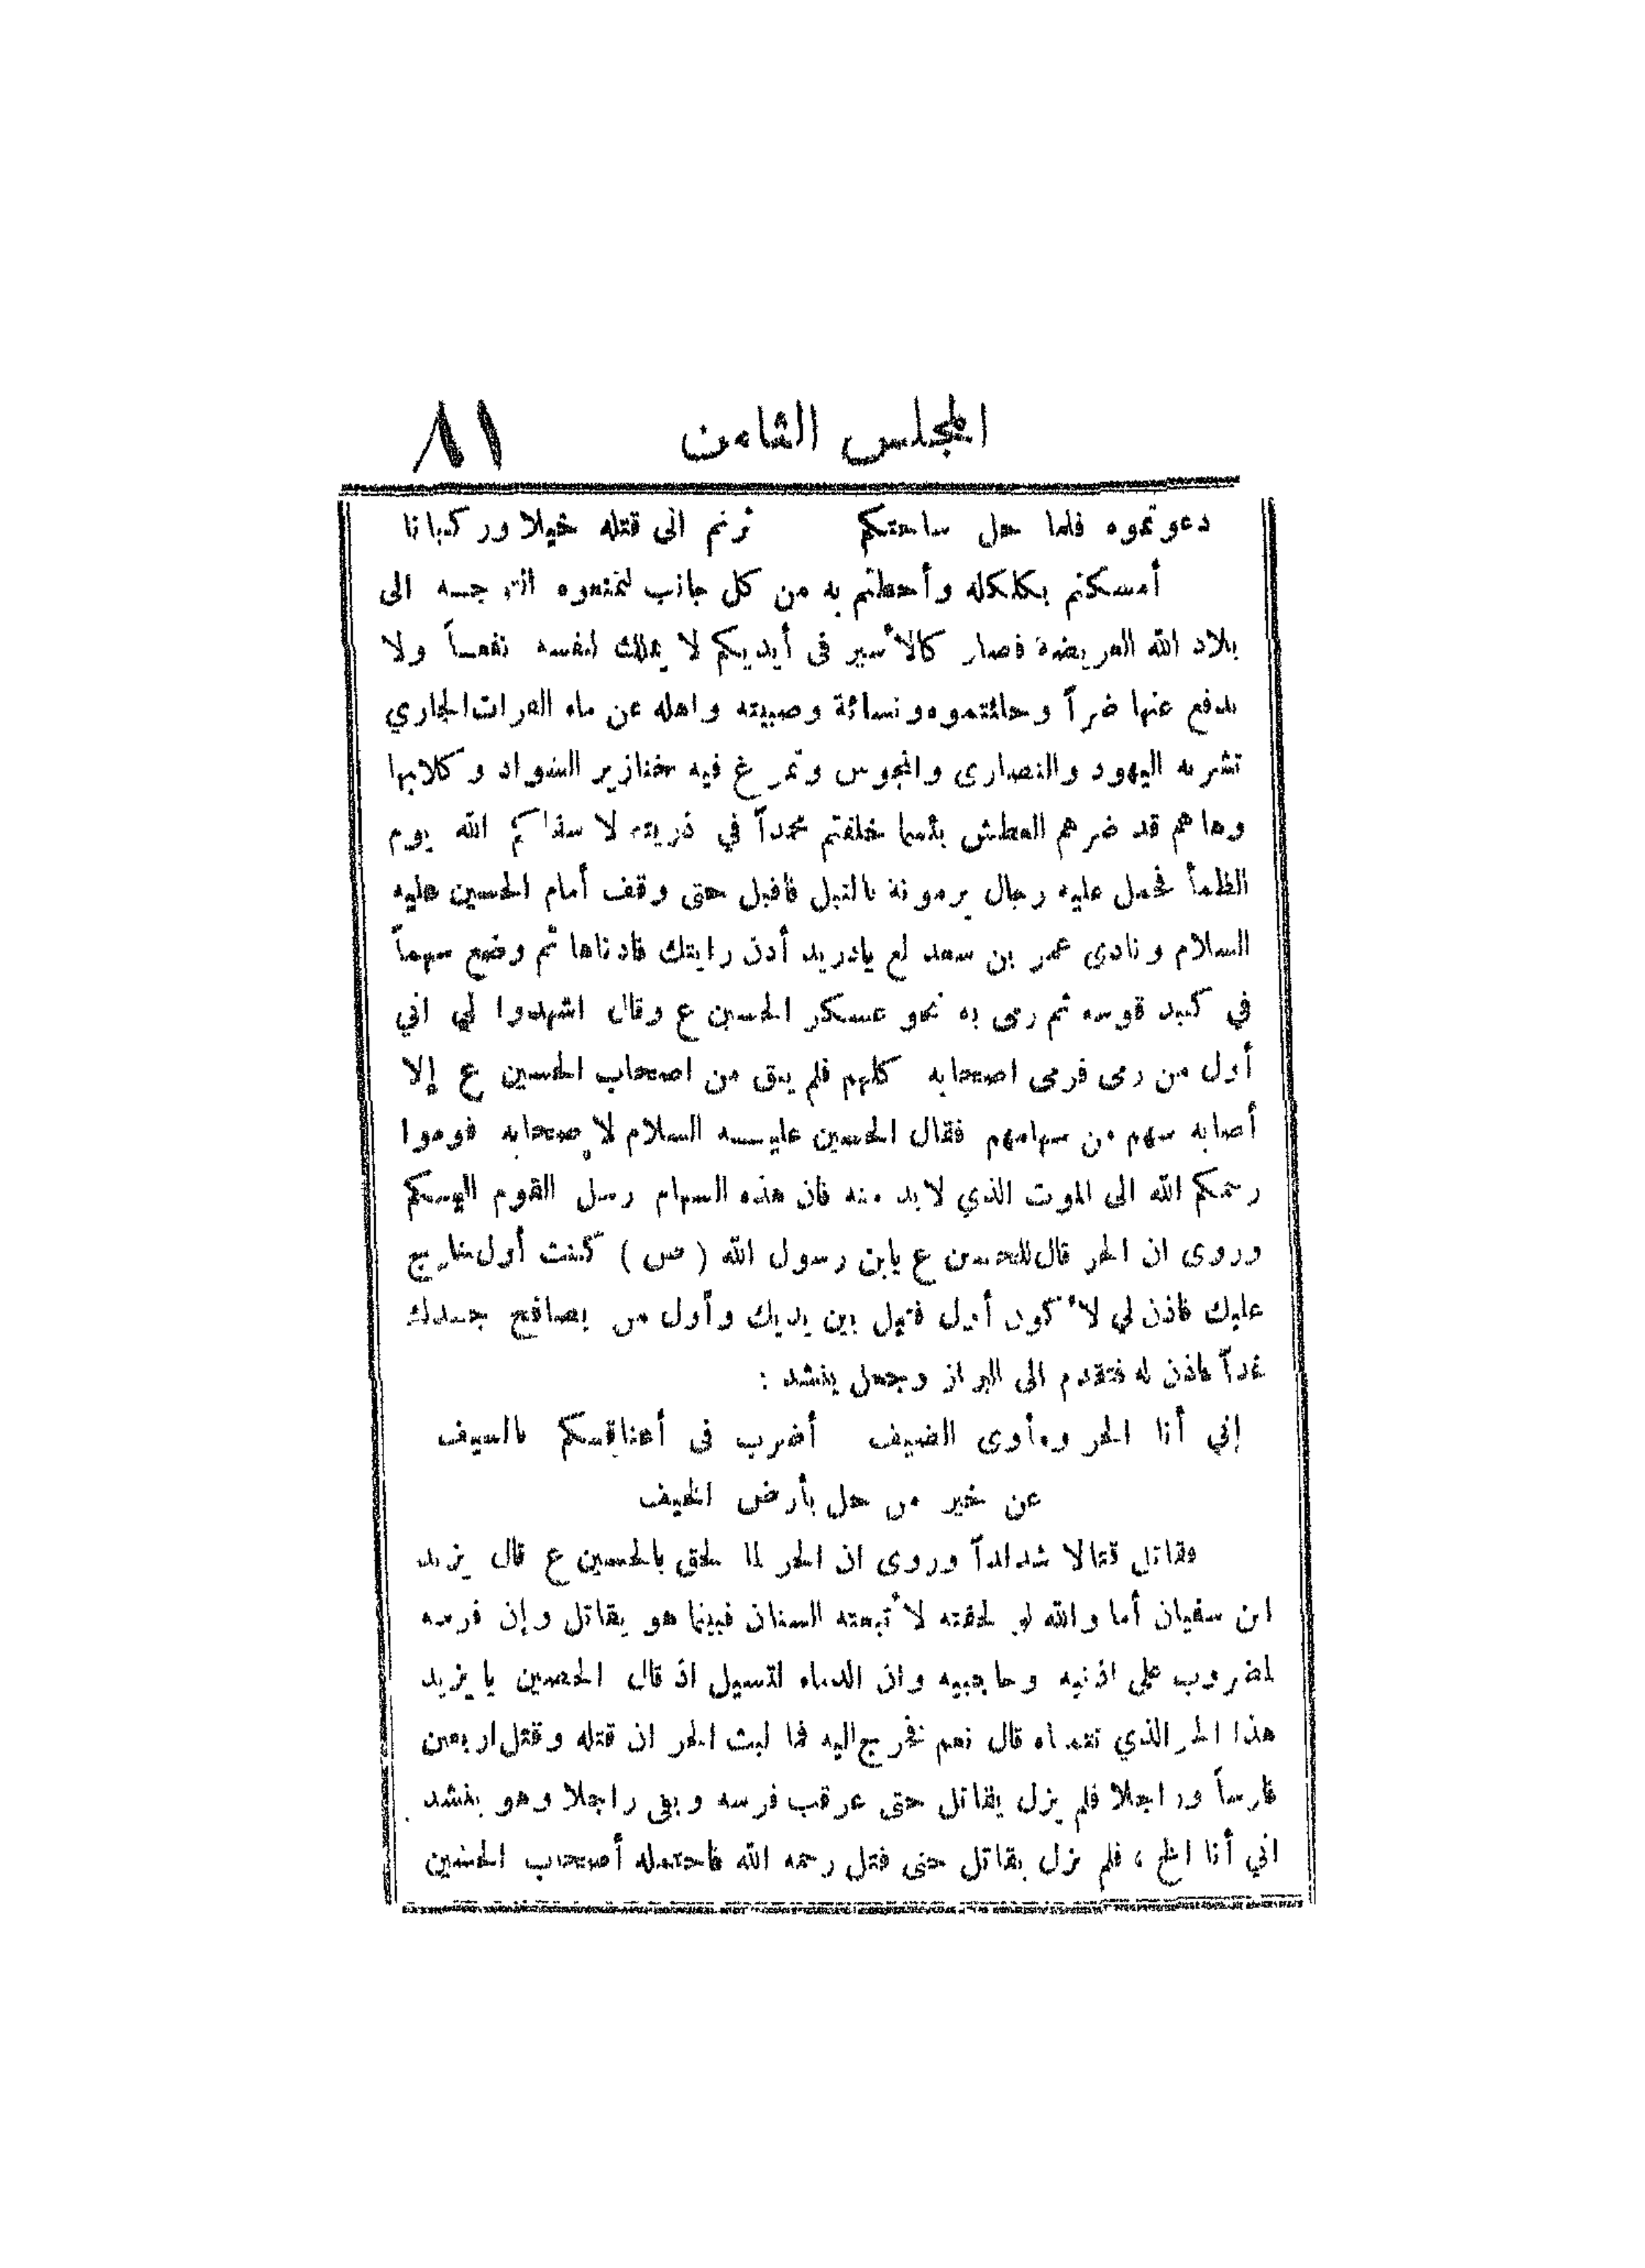 المجلس الثامن ٨١
دعوتموه فلما حل ساحتكم ثرتم الى قتله خيلا وركبانا
أمسكتم بكلكله وأحطتم به من كل جانب لتمنعوه التوجــه الى
بلاد الله العريضة فصار كالأسير في أيديكم لا يملك لنفسه نفعــاً ولا
يدفع عنها ضراً وحلئتموه ونسائة وصبيته واهله عن ماء الفرات الجاري
تشربه اليهود والنصارى والمجوس وتمرغ فيه خنازير السواد وكلابها
وها هم قد ضرهم العطش بئسما خلفتم محمداً في ذريته لا سقاكم الله يوم
الظمأ فحمل عليه رجال يرمونة بالنبل فاقبل حتى وقف أمام الحسين عليه
السلام ونادى عمر بن سعد لع يادريد أدن رايتك فادناها ثم وضع سهماً
في كبد قوسه ثم رمى به نحو عسكر الحسين ع وقال اشهدوا لي اني
أول من رمى فرمى اصحابه كلهم فلم يبق من اصحاب الحسين ع إلا
أصابه سهم من سهامهم فقال الحسين عليــه السلام لاصحابه قوموا
رحمكم الله الى الموت الذي لابد منه فان هذه السهام رسل القوم اليــكم
وروى ان الحر قال للحسين ع يابن رسول الله ( ص ) كنت أول خارج
عليك فاذن لي لأكون أول قتيل بين يديك وأول من يصافح جــدك
غداً فاذن له فتقدم الى البراز وجعل ينشد :
إني أنا الحر ومأوى الضيف أضرب في أعناقــكم بالسيف
عن خير من حل بأرض الخيف
فقاتل قتالا شديداً وروى ان الحر لما لحق بالحسين ع قال يزيد
ابن سفيان أما والله لو لحقته لأتبعته السنان فبينما هو يقاتل وإن فرسه
لمضروب على اذنيه وحاجبيه وان الدماء لتسيل اذ قال الحصين يا يزيد
هذا الحر الذي تتمناه قال نعم فخرج اليه فما لبث الحر ان قتله وقتل اربعين
فارساً وراجلا فلم يزل يقاتل حتى عرقب فرسه وبقى راجلا وهو ينشد
اني أنا الخ ، فلم يزل يقاتل حتى قتل رحمه الله فاحتمله أصحاب الحسين